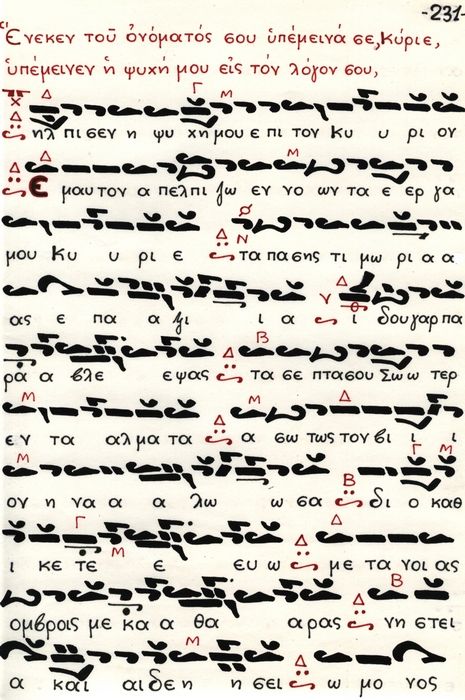 -231-
Ἕνεκεν τοῦ ὀνόματός σου ὑπέμεινά σε, Κύριε,
ὑπέμεινεν ἡ ψυχή μου εἰς τόν λόγον σου,
ηλ πι σεν η ψυ χη μου ε πι τον Κυ υ ρι ον
Ε μαυτον α πελπι ζω εν νο ων τα ε ερ γα
μου Κυ υ ρι ε τα πασης τι μω ρι α α
ας ε πα α ξι ι α ι δου γαρ πα
ρα α βλε εψας τα σε πτα σου Σω ω τερ
εν τα αλ μα τα α σω τως τον βι ι ι
ον η να α α λω ω σα δι ο καθ
ι κε τε ε ευ ω με τα νοι ας
ομβροις με κα α θα αρας νη στει
α και αι δε η η σει ω μο νος